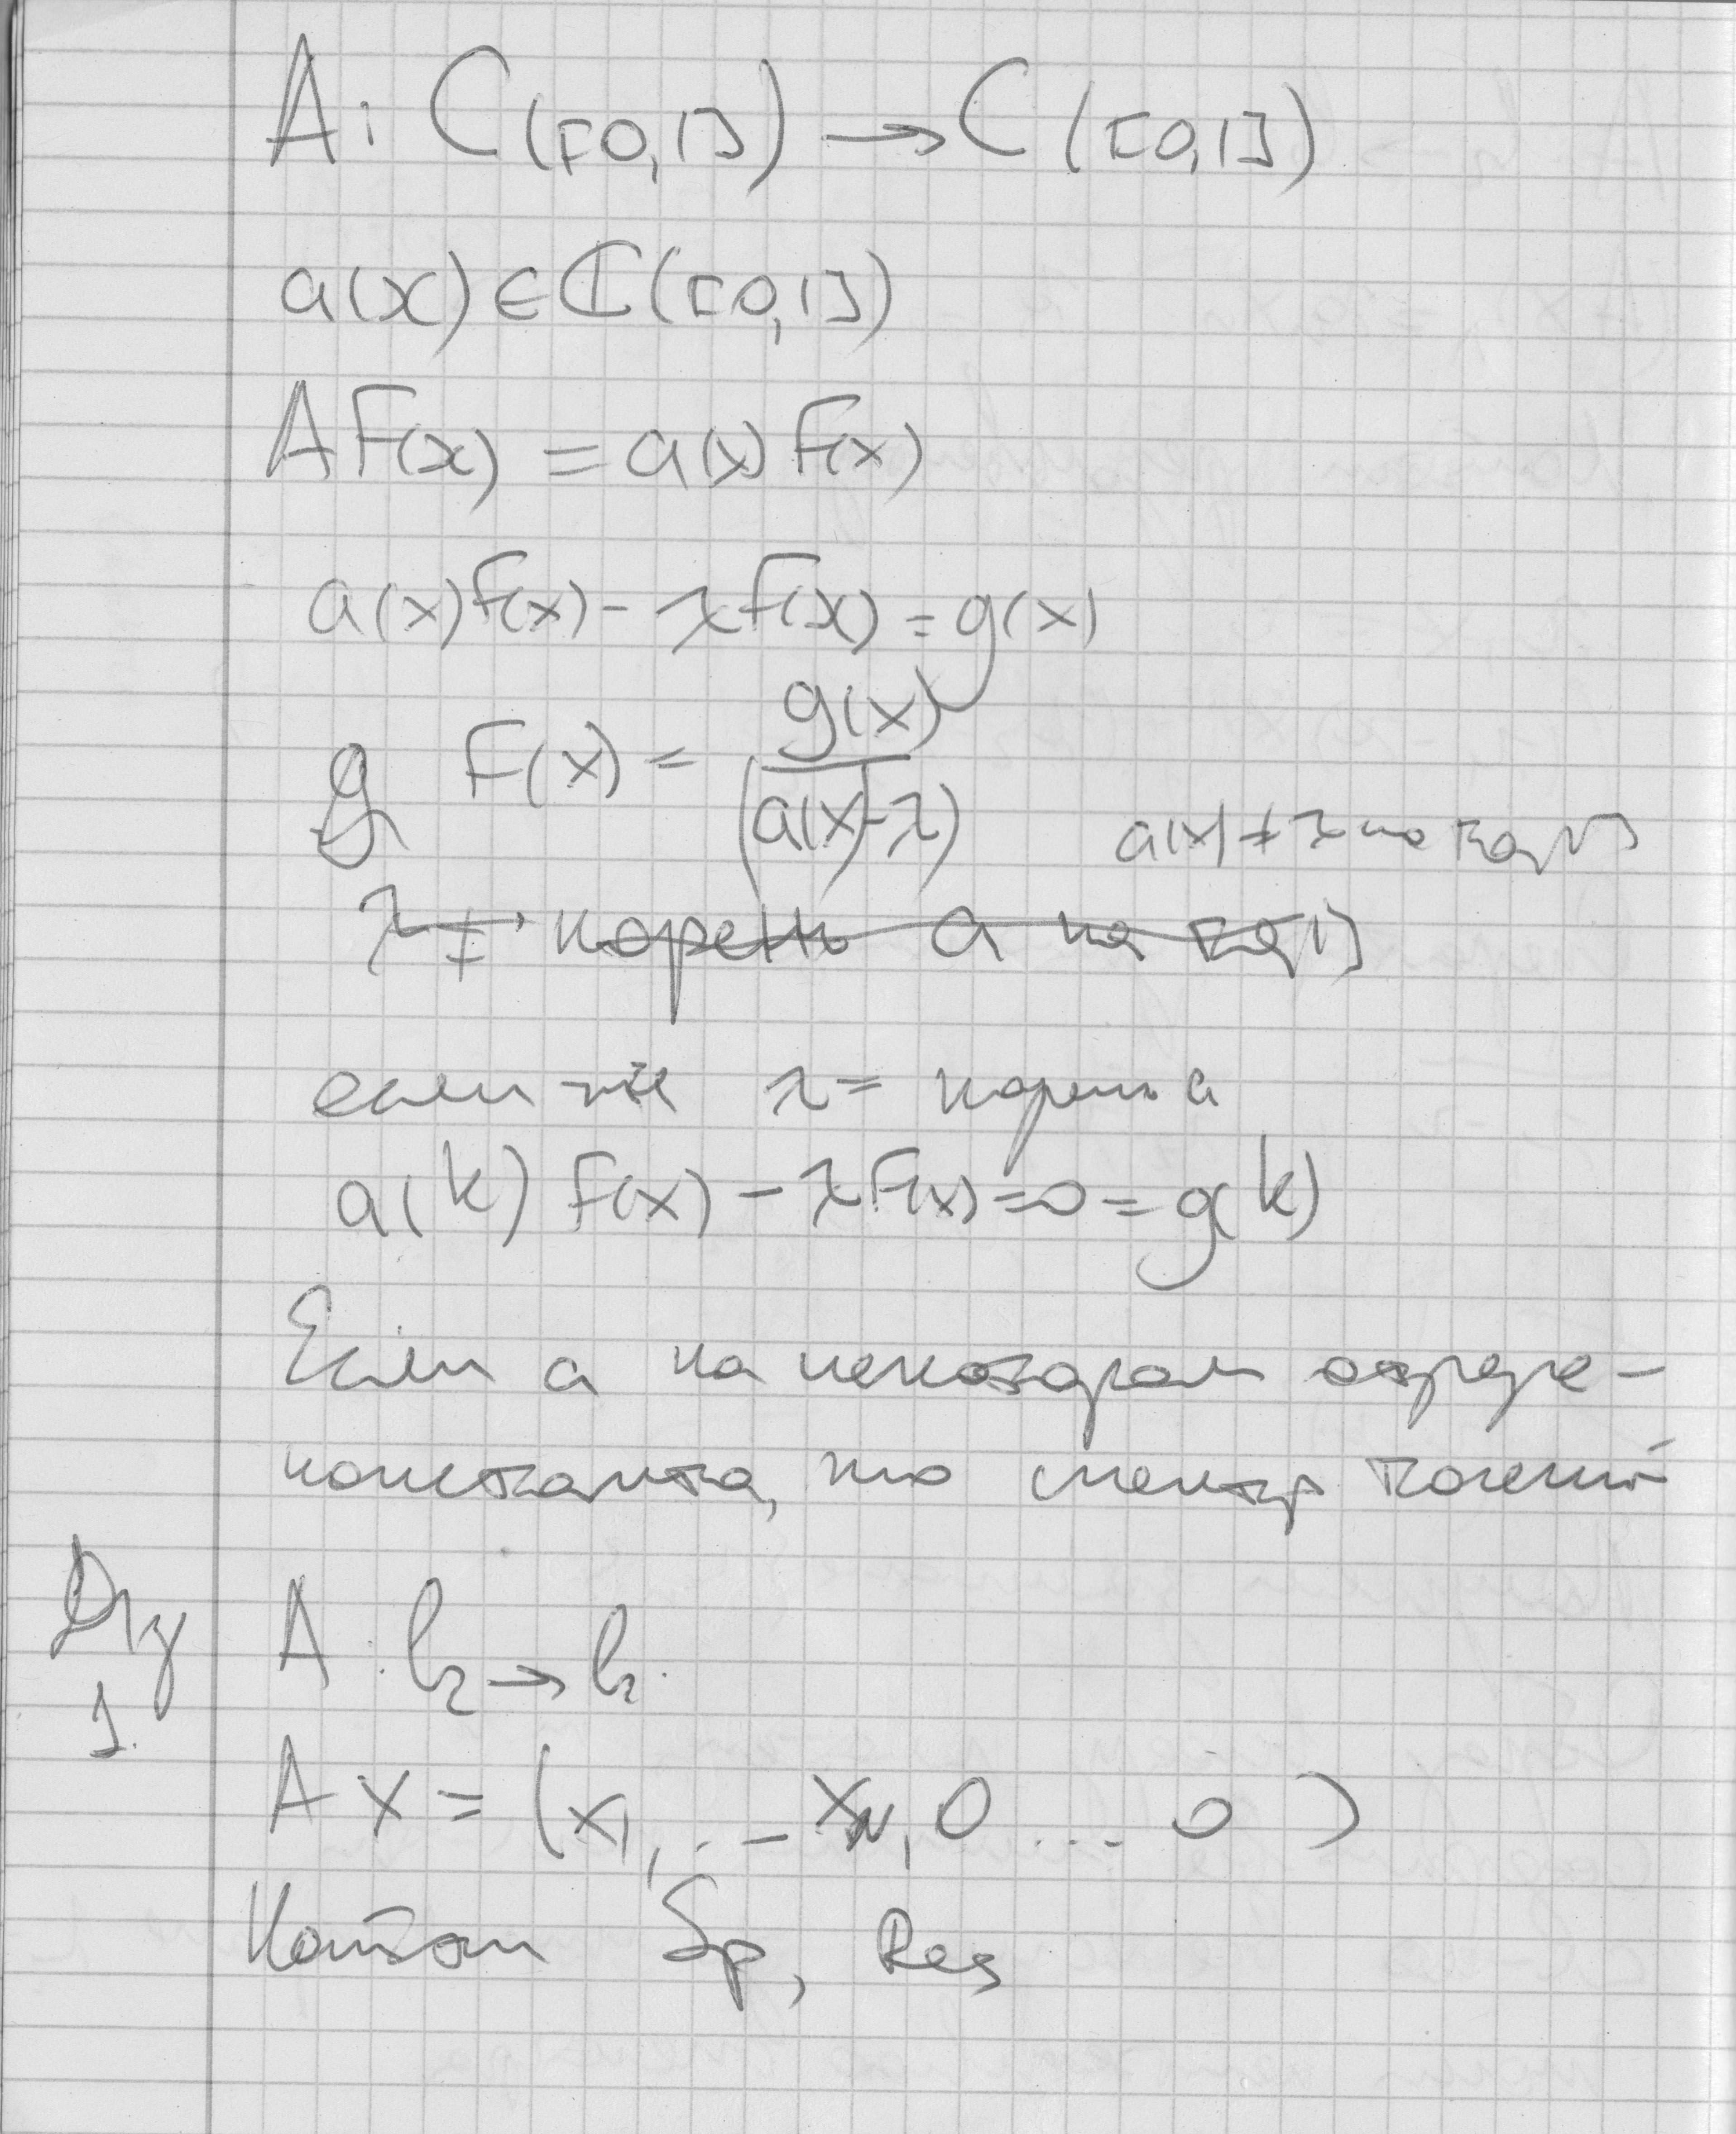 A: C([0,1]) → C([0,1])
a(x) ∈ C([0,1])
AF(x) = a(x) F(x)
a(x)F(x) - λF(x) = g(x)
g F(x) = g(x) / (a(x)-λ) a(x) ≠ λ на [0,1]
λ ≠ корень a на [0,1]
если же λ = корень a
a(k) F(x) - λF(x) = 0 = g(k)
Если a на некотором отрезке -
константа, то спектр точечный
Д/з A: l₂ → l₂
1. Ax = (x₁, ... xₙ, 0 ... 0)
Найти Sp, Res